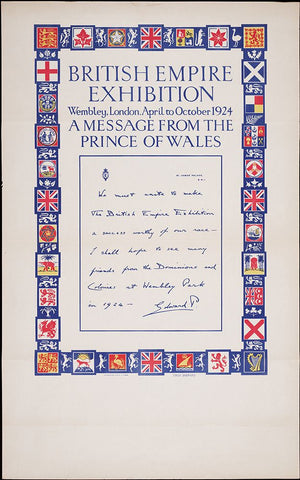 BRITISH EMPIRE
EXHIBITION
Wembley, London, April to October 1924
A MESSAGE FROM THE
PRINCE OF WALES
ST. JAMES'S PALACE,
S.W.
We must unite to make
The British Empire Exhibition
a success worthy of our race—
I shall hope to see many
friends from the Dominions and
Colonies at Wembley Park
in 1924— Edward P